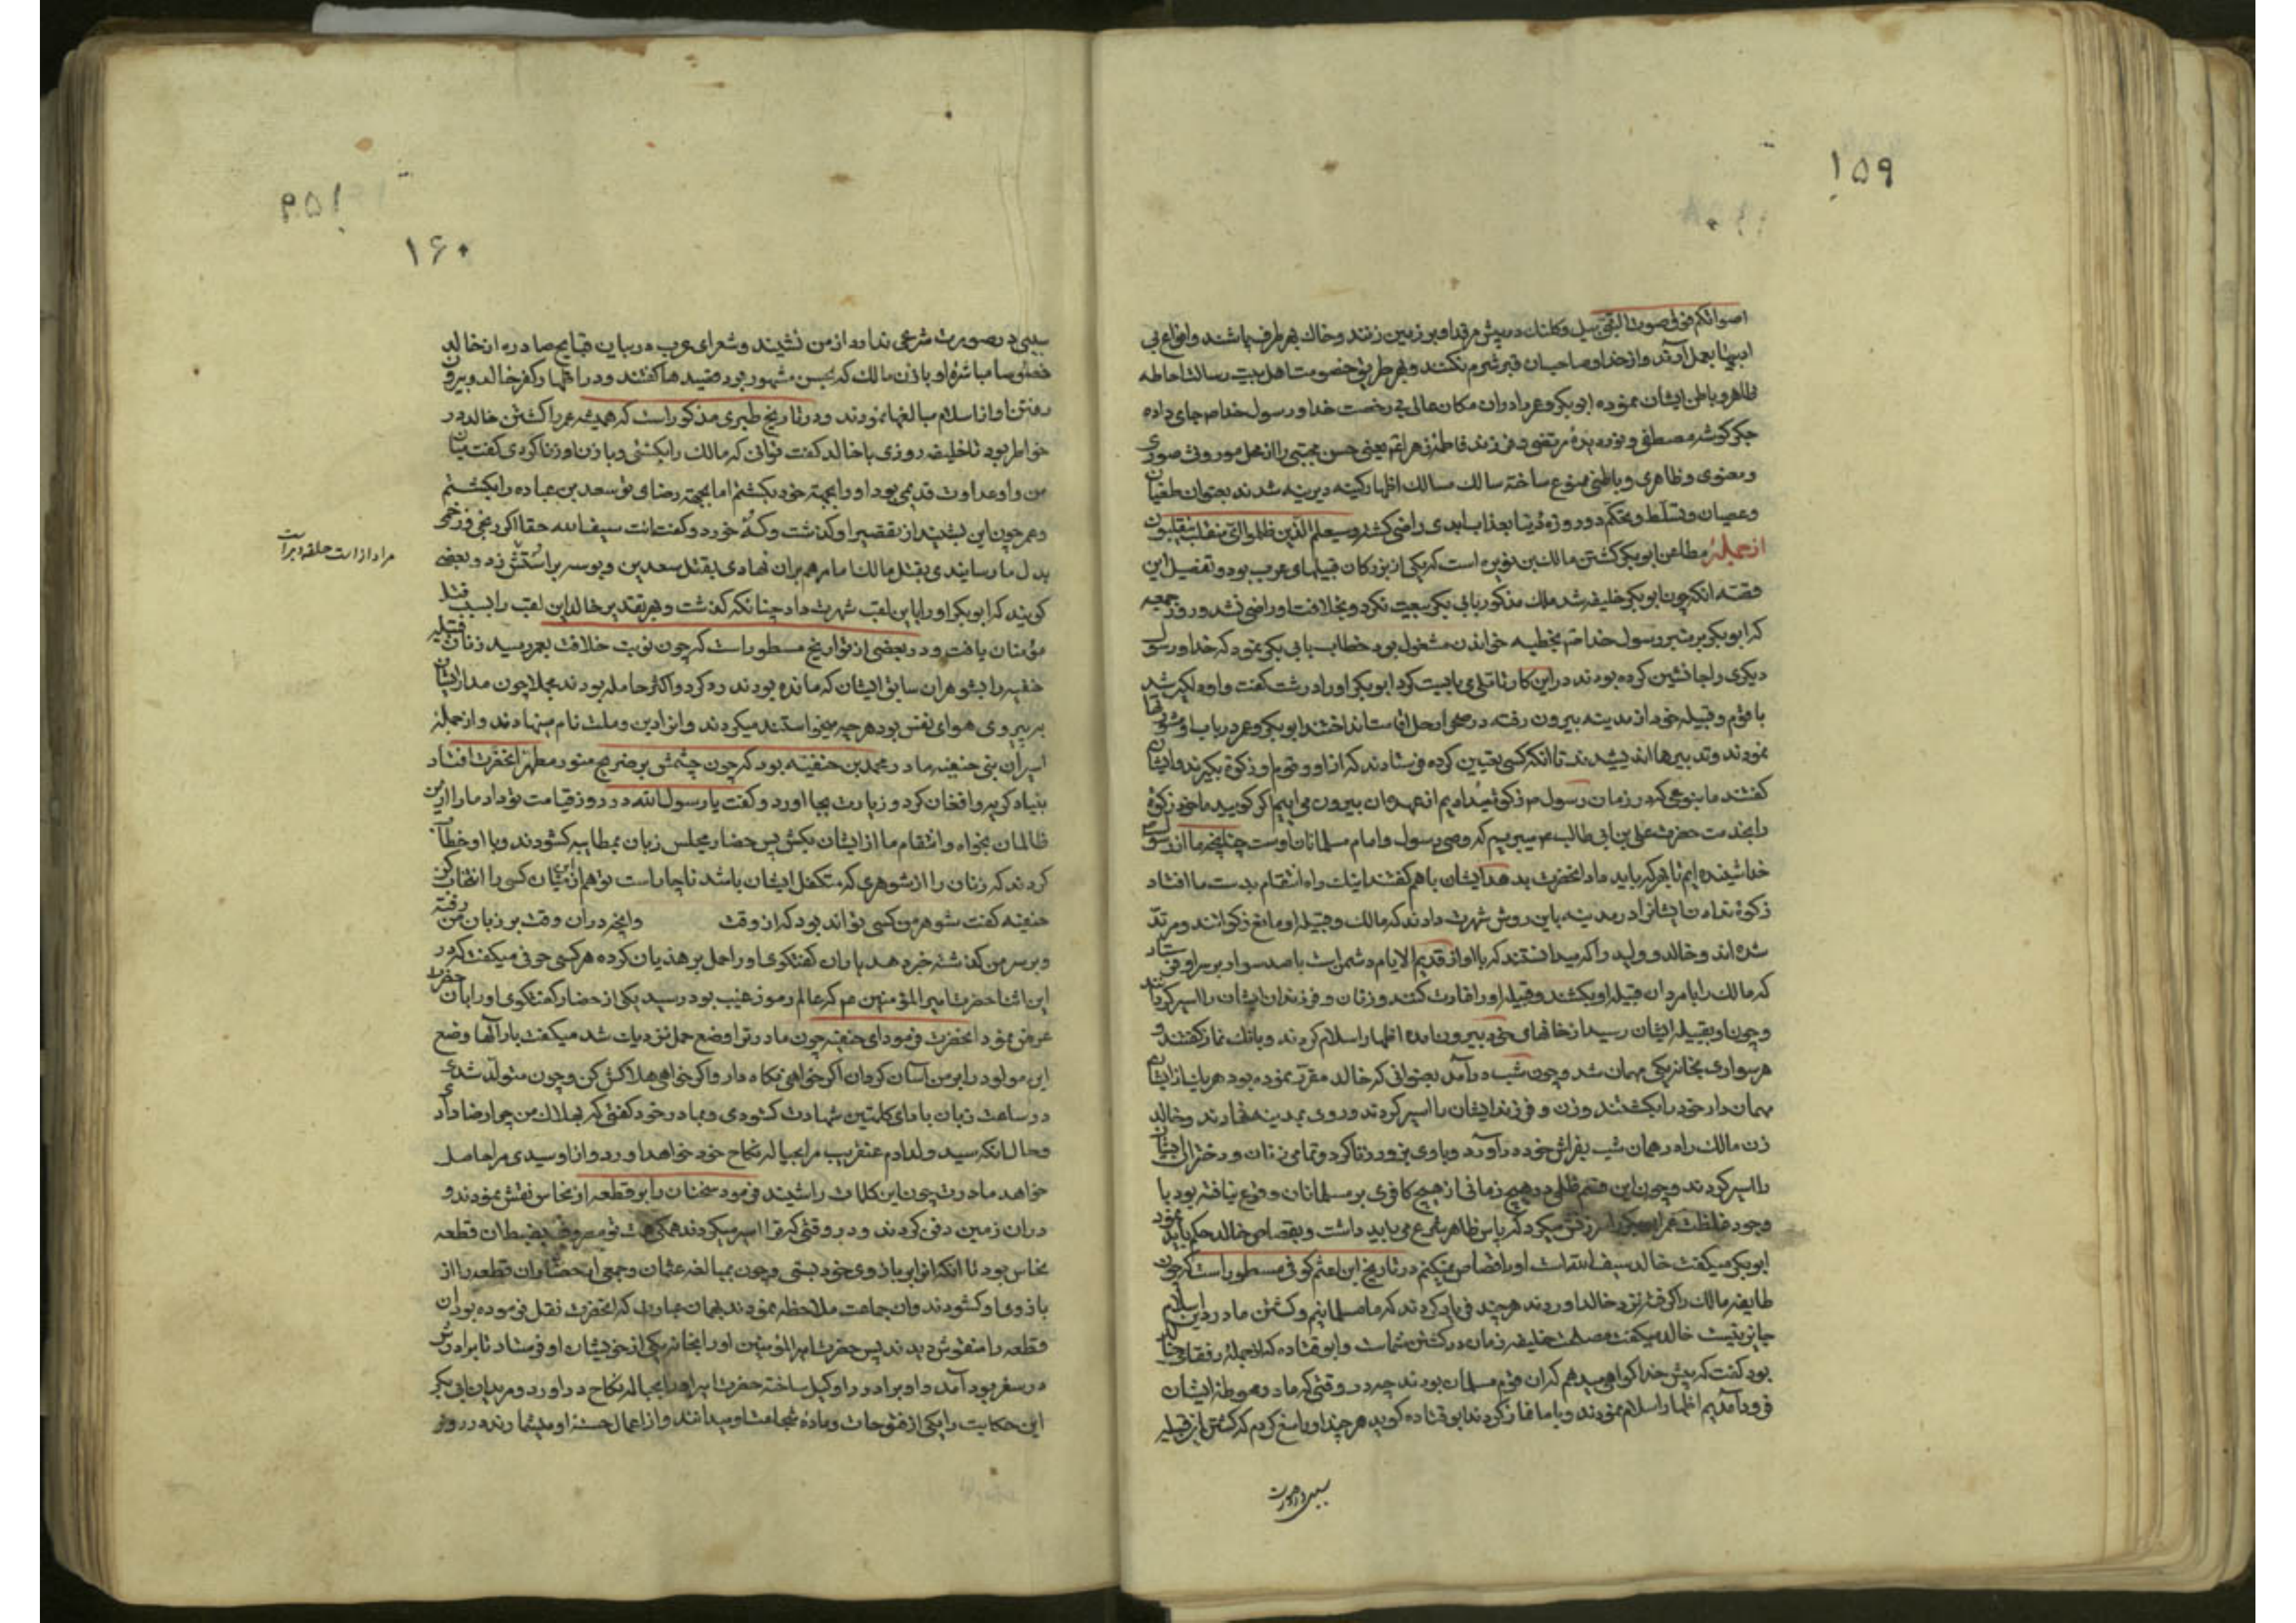 ۱۵۹
اصواتکم فوق صوت النبی بیل و کلنک در پیش مرقد او بر زمین زنند و خاک بهر طرف پاشند و انواع بی
ادبیها بعمل آرند و از خدا و صاحبان قبر شرم نکنند و بهر طریق خصومت اهل بیت رسالت احاطه
ظاهر و باطن ایشان نموده ابو بکر و عمر را در ان مکان عالی بی رخصت خدا و رسول خدا صم جای داده
جکر کوشه مصطفی و نور دیده مرتضی و فرزند فاطمه زهرا عم یعنی حسن مجتبی را از محل موروث صوری
و معنوی و ظاهری و باطنی ممنوع ساخته سالک مسالک اظهار کینه دیرینه شدند بعنوان طغیان
و عصیان و تسلط و تحکم دو روزه دنیا بعذاب ابدی راضی کشته و سیعلم الذین ظلموا ای منقلب ینقلبون
از جمله مطاعن ابو بکر کشتن مالک بن نویره است که یکی از بزرکان قبیلهای عرب بود و تفصیل این
قصه انکه چون ابو بکر خلیفه شد ملک مذکور بابی بکر بیعت نکرد و بخلافت او راضی نشد و روز جمعه
که ابو بکر بر منبر رسول خدا صم بخطبه خواندن مشغول بود خطاب بابی بکر نمود که خدا و رسول
دیکری را جانشین کرده بودند در این کار تاملی بایست کرد ابو بکر او را درشت کفت و او دلکیر شد
با قوم و قبیله خود از مدینه بیرون رفته در صحرا رحل اقامت انداختند ابو بکر و عمر در باب او مشورتها
نمودند و تدبیرها اندیشیدند تا انکه کسی تعیین کرده فرستادند که از او و قوم او زکوة بکیرند و ایشان
کفتند ما بنوعی که در زمان رسول م زکوة میدادیم از عهده ان بیرون می اییم اکر کویید ما خود زکوة
را بخدمت حضرت علی بن ابی طالب عم میبریم که وصی رسول و امام مسلمانان اوست چنانچه ما از رسول
خدا شنیده ایم تا بهر که باید داد انحضرت بدهد ایشان با هم کفتند اینک راه انتقام بدست ما افتاد
زکوة ندادن ایشانرا در مدینه باین روش شهرت دادند که مالک و قبیله او مانع زکوة اند و مرتد
شده اند و خالد و ولید را که میدانستند که با او از قدیم الایام دشمن است با صد سوار بر سر او فرستادند
که مالک را با مردان قبیله او بکشند و قبیله او را غارت کنند و زنان و فرزندان ایشان را اسیر کردانند
و چون او بقبیله ایشان رسید از خانهای خود بیرون امده اظهار اسلام کردند و بانک نماز کفتند و
هر سواری بخانه یکی مهمان شد و چون شب در آمد بعنوانی که خالد مقرر نموده بود هر یک از ایشان
مهمان دار خود را بکشتند و زن و فرزند ایشان را اسیر کردند و روی بمدینه نهادند و خالد
زن مالک را در همان شب بفراش خود در آورد و با وی بزور زنا کرد و تمامی زنان و دختران ایشان
را اسیر کردند و چون این قسم ظلمی در هیچ زمانی از هیچ کافری بر مسلمانان وقوع نیافته بود با
وجود غلظت عمر ابو بکر را سرزنش میکرد که پاس ظاهر شرع می باید داشت و بقصاص خالد حکم باید نمود
ابو بکر میکفت خالد سیف الله است او را قصاص نمیکنم در تاریخ ابن اعثم کوفی مسطور است که چون
طایفه مالک را کرفته نزد خالد اوردند هر چند فریاد کردند که ما مسلمانیم و کشتن ما در دین اسلام
جایز نیست خالد میکفت مصلحت خلیفه زمان در کشتن شماست و ابو قتاده که از جمله رفقای خالد
بود کفت که پیش خدا کواهی میدهم که ان قوم مسلمان بودند چه در وقتی که ما در موطن ایشان
فرود آمدیم اظهار اسلام نمودند و با ما نماز کردند ابو قتاده کوید هر چند او را منع کردم که کشتن این قبیله
سببی در صورت
۱۵۹
۱۶۰
سببی در صورت شرعی ندارد از من نشنید و شعرای عرب در بیان قبایح صادره از خالد
خصوصا مباشرة او با زن مالک که بحسن مشهور بود قصیدها کفتند و در اظهار کفر خالد و بیرون
رفتن او از اسلام مبالغها نمودند و در تاریخ طبری مذکور است که همیشه عمر را کشتن خالد در
خواطر بود تا خلیفه روزی با خالد کفت توانی که مالک را بکشتی و با زن او زنا کردی کفت میان
من و او عداوت قدیمی بود او را بجهة خود بکشتم اما بجهة رضای تو سعد بن عباده را بکشتم
و عمر چون این بشنید از تقصیر او کذشت و کفت انت سیف الله حقا اکر رنجی و زخمی
بدل ما رسانیدی بقتل مالک اما مرهم بران نهادی بقتل سعد پس و بوسه بر استش زد و بعضی
کویند که ابو بکر او را باین لقب شهرت داد چنانکه کذشت و بهر تقدیر خالد این لقب را بسبب قتل
مؤمنان یافت و در بعضی از تواریخ مسطور است که چون نوبت خلافت بعمر رسید زنان قبیله
حنفیه را بشوهران سابق ایشان که مانده بودند رد کرد و اکثر حامله بودند مجملا چون مدار ایشان
بر پیروی هوای نفس بود هر چه میخواستند میکردند و انرا دین و ملت نام مینهادند و از جمله
اسیران بنی حنیفه مادر محمد بن حنفیه بود که چون چشمش بر ضریح منور مطهر انحضرت افتاد
بنیاد کریه و افغان کرد و زیارت بجا اورد و کفت یا رسول الله در روز قیامت تو داد ما را از این
ظالمان بخواه و انتقام ما از ایشان بکش پس حضار مجلس زبان بمطایبه کشودند و با او خطاب
کردند که زنان را از شوهری که متکفل ایشان باشد ناچار است تو هم از میان کسی را انتخاب کن
حنفیه کفت شوهر من کسی تواند بود که از وقت وانچه در ان وقت بر زبان من رفته
و بر سر من کذشته خبر دهد یاران کفتکوی او را حمل بر هذیان کرده هر کسی حرفی میکفت که در
این اثنا حضرت امیر المؤمنین عم که عالم رموز غیب بود در رسید یکی از حضار کفتکوی او را بان حضرت
عرض نمود انحضرت فرمود ای حنفیه چون مادر تو را وضع حمل نزدیک شد میکفت بار آلها وضع
این مولود را بر من آسان کردان اکر خواهی نکاه دار و اکر خواهی هلاکش کن و چون متولد شدی
در ساعت زبان بادای کلمتین شهادت کشودی و بمادر خود کفتی که بهلاک من چرا رضا دادی
و حال انکه سید ولد ادم عنقریب مرا بحباله نکاح خود خواهد اورد و از او سیدی مرا حاصل
خواهد مادرت چون این کلمات را شنید فرمود سخنان را بر قطعه از نحاس نقش نمودند و
در ان زمین دفن کردند و در وقتی که ترا اسیر میکردند همکی همت تو مصروف بضبط ان قطعه
نحاس بود تا انکه انرا بر بازوی خود بستی و چون بمبالغه عثمان و جمعی از حضار ان قطعه را از
بازوی او کشودند و ان جماعت ملاحظه نمودند بهمان عبارت که انحضرت نقل فرموده بود ان
قطعه را منقوش دیدند پس حضرت امیر المؤمنین او را بخانه یکی از خویشان او فرستاد تا برادرش
در سفر بود آمد و او برادر را وکیل ساخته حضرت امیر او را بحباله نکاح در اورد و مریدان ابی بکر
این حکایت را یکی از فتوحات و ماده شجاعت او میدانند و از اعمال حسنه او میشمارند در روز
مراد از است حلقه دبر است